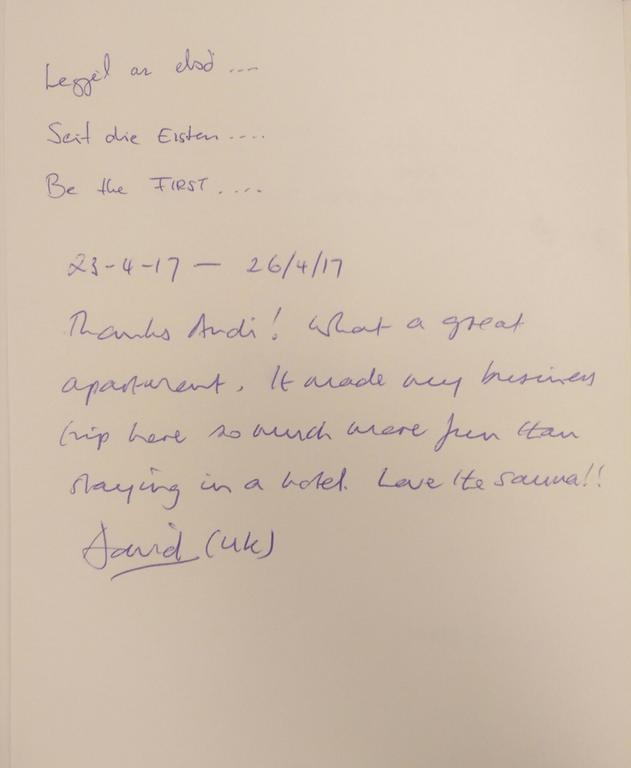 Legyél az első ....
Seit die Ersten ....
Be the FIRST ....
23-4-17 — 26/4/17
Thanks Andi! What a great
apartment. It made my business
trip here so much more fun than
staying in a hotel. Love the sauna!!
David (UK)